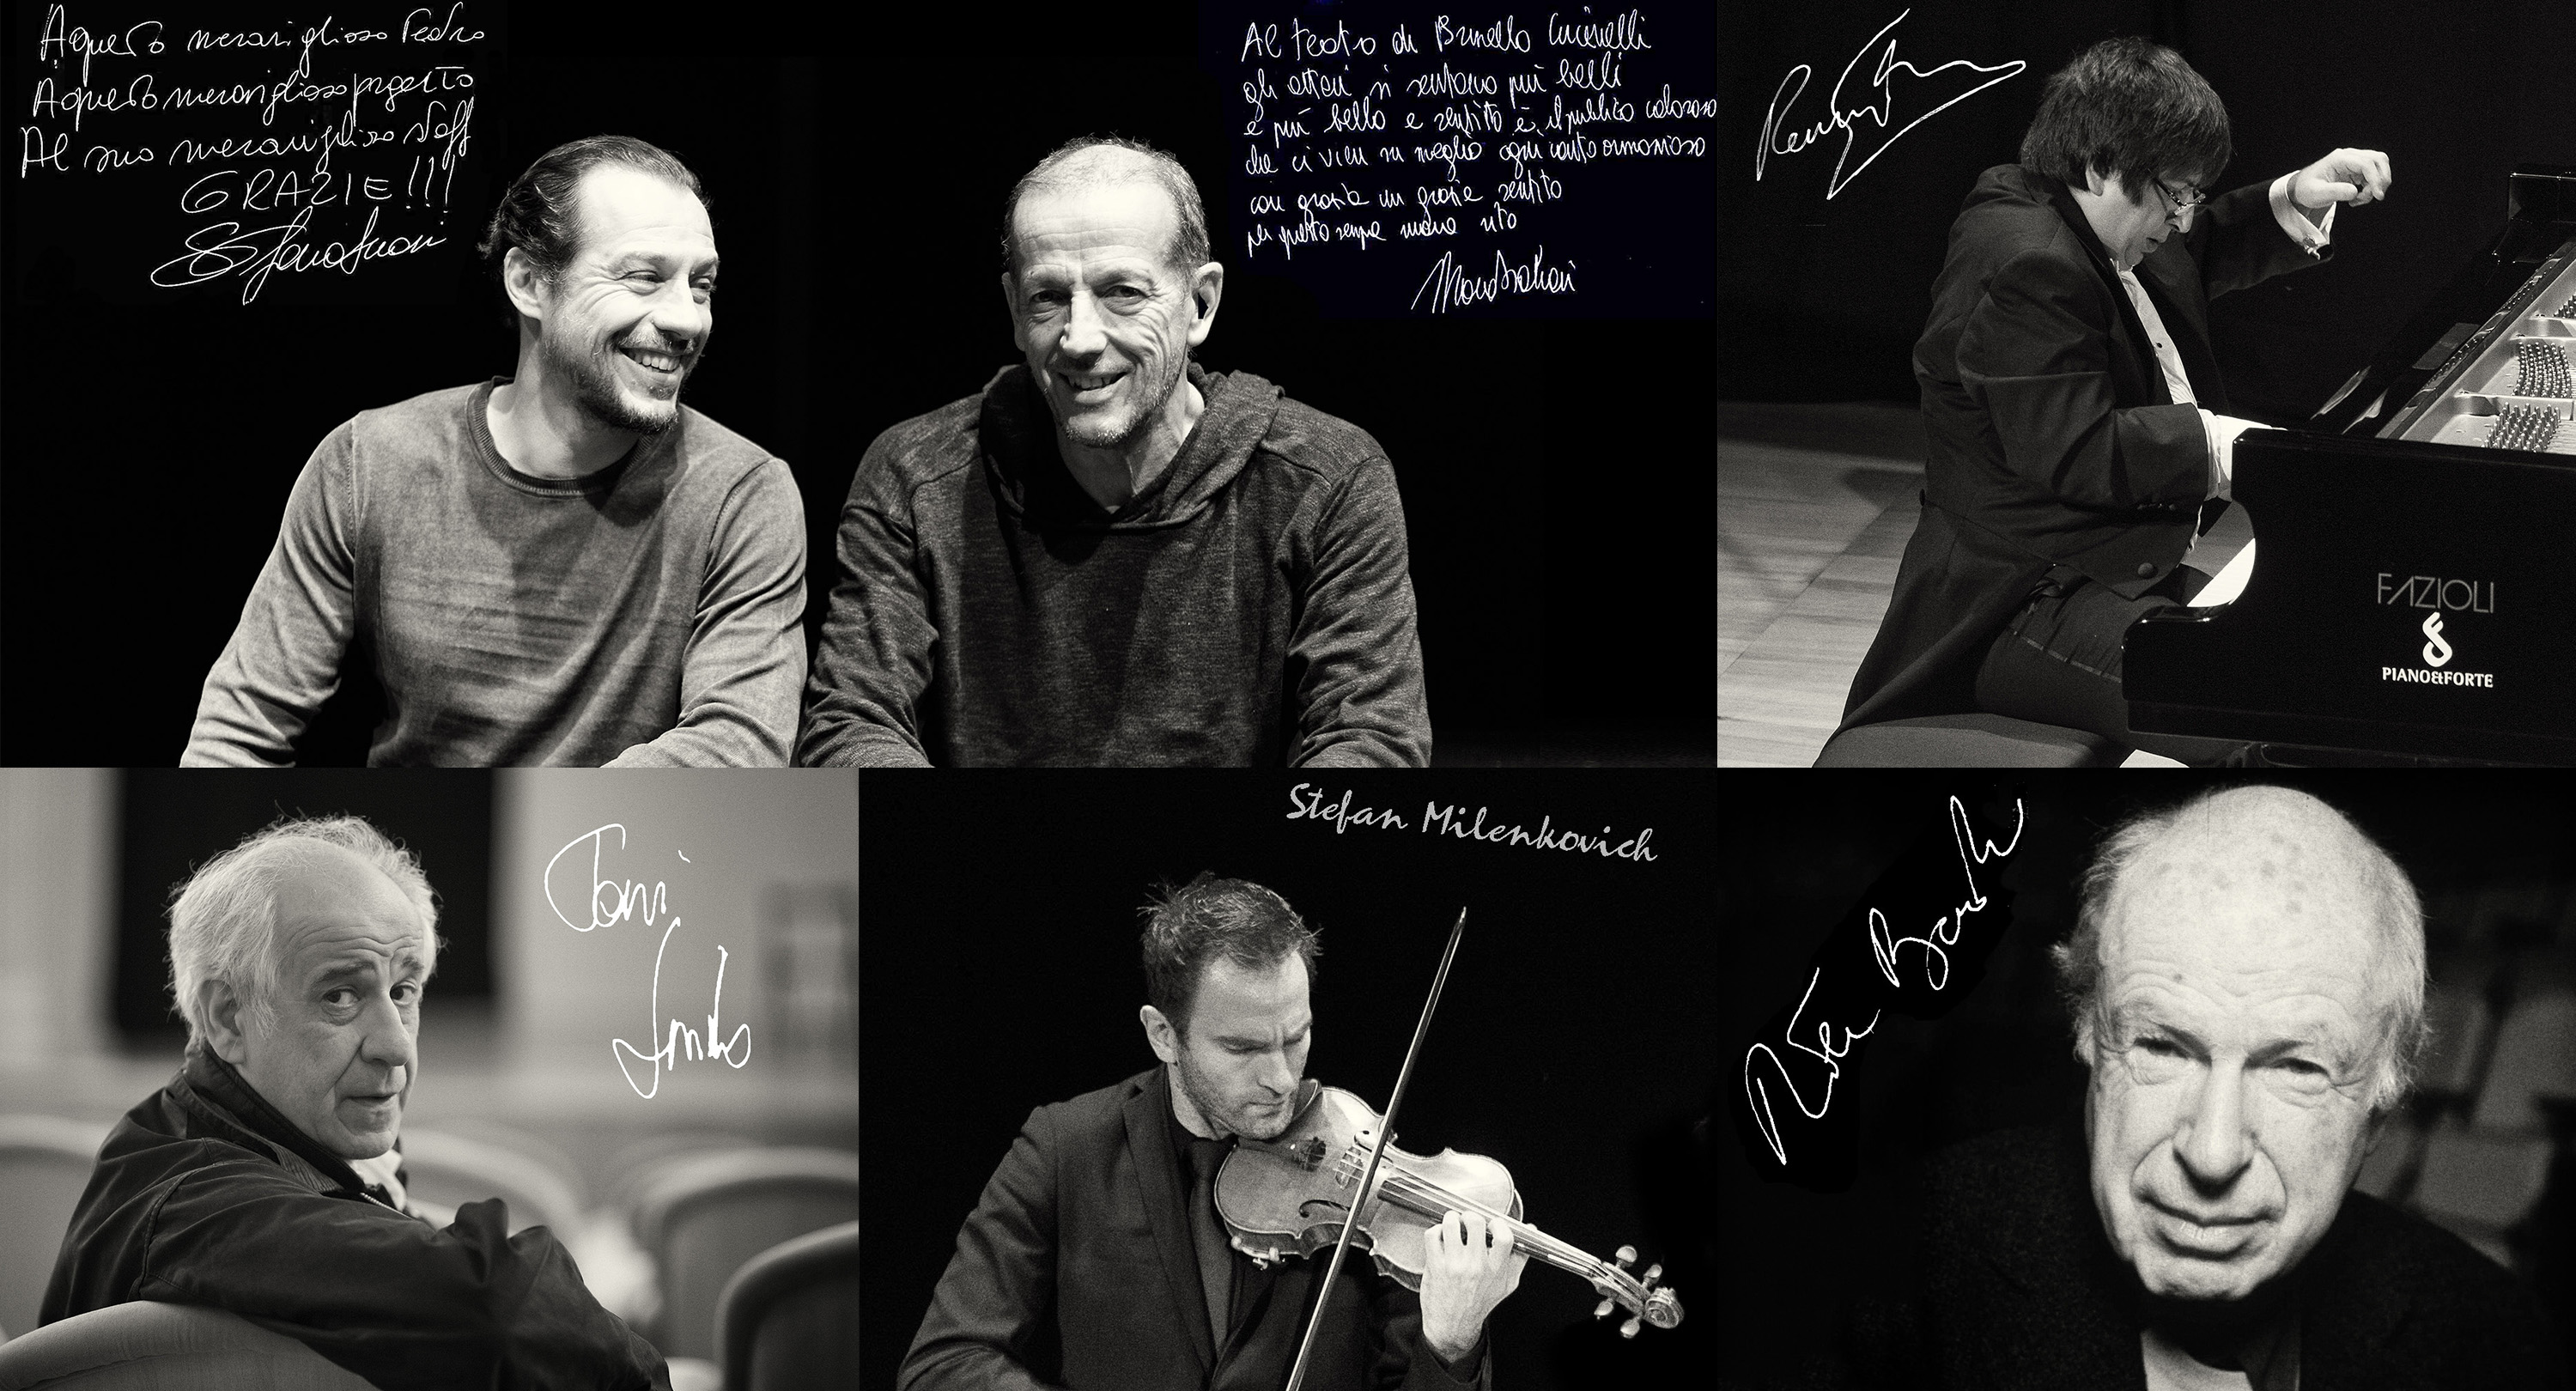 A questo meraviglioso Teatro
A questo meraviglioso progetto
Al suo meraviglioso Staff
GRAZIE!!!
Al teatro di Brunello Cucinelli
gli attori si sentono più belli
e più bello e sentito è il pubblico caloroso
che ci vien su meglio ogni canto armonioso
con grazia un grazie sentito
per questo sempre
FAZIOLI
PIANO&FORTE
Toni
Stefan Milenkovich
Peter